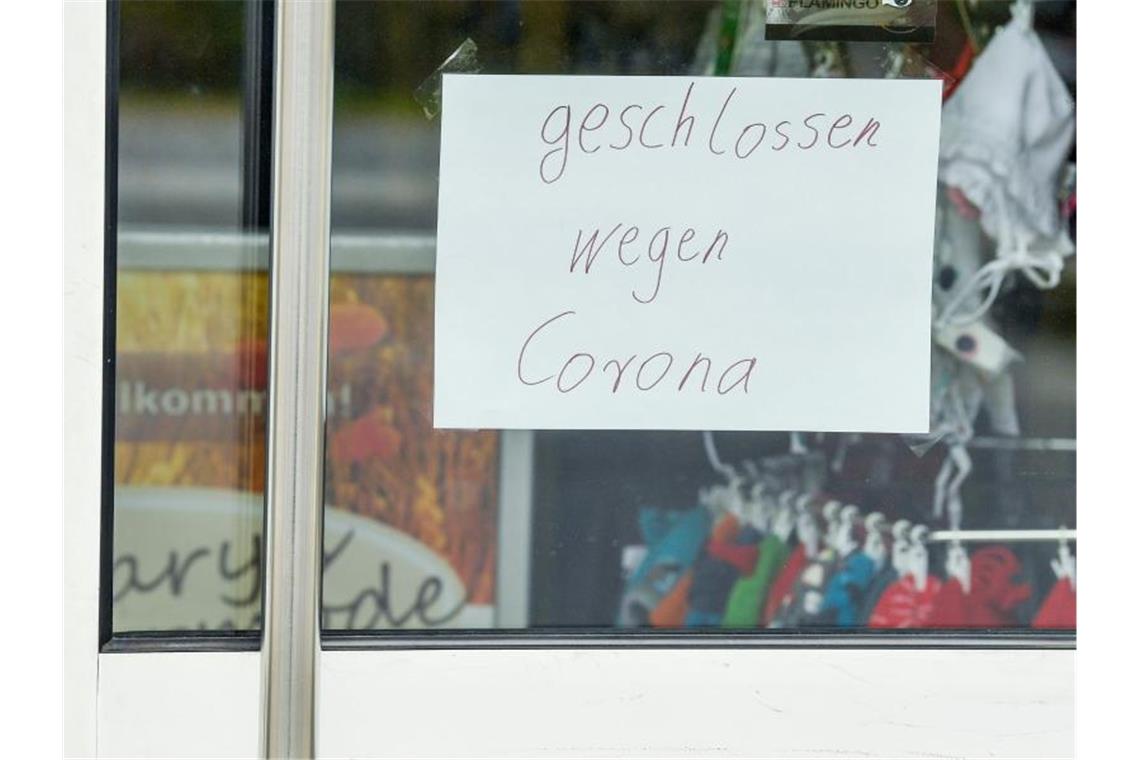 FLAMINGO
geschlossen
wegen
Corona
lkommen!
ary's
ode